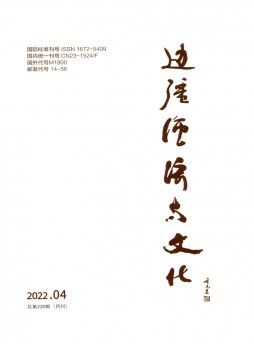 国际标准刊号 ISSN 1672-5409
国内统一刊号 CN23-1524/F
国外代号M1800
邮发代号 14-56
边疆经济与文化
2022.04
总第220期（月刊）